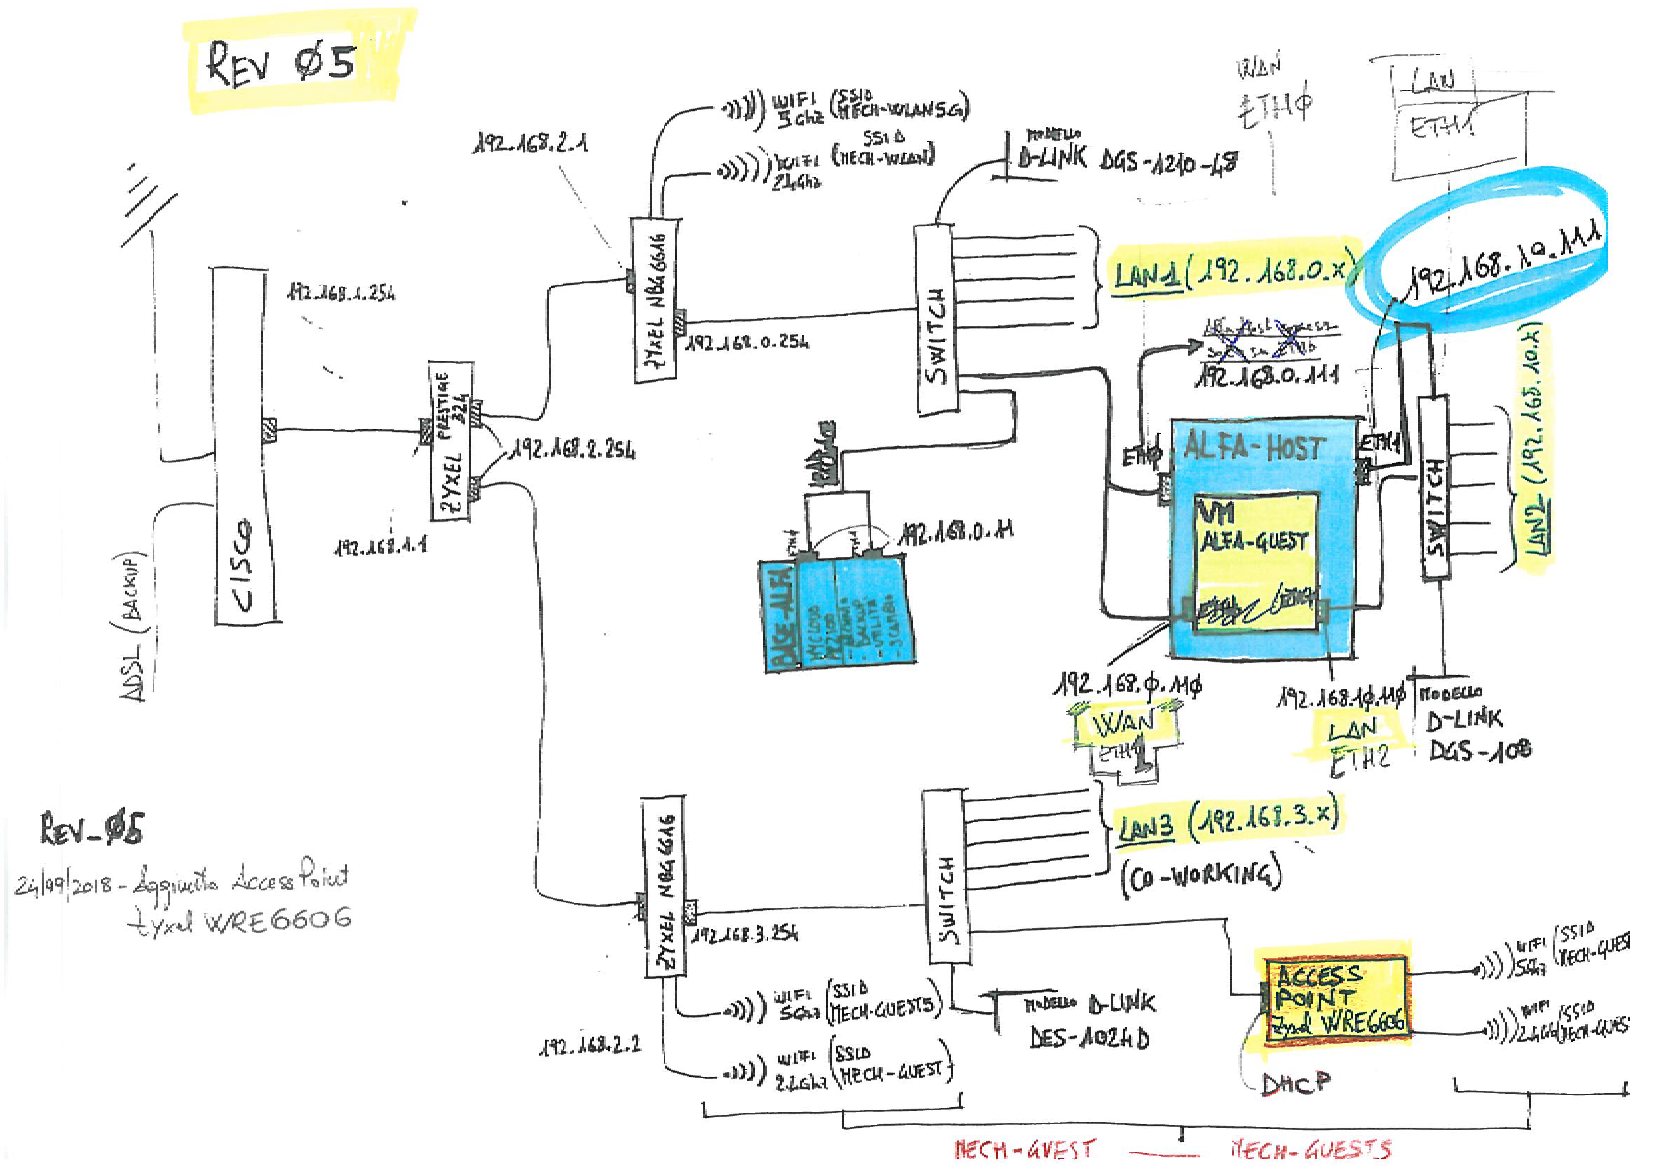 REV Ø5
192.168.2.1
WIFI (SSID
5Ghz MECH-WLAN5G)
SSID
WIFI (MECH-WLAN)
2.4Ghz
MODELLO
D-LINK DGS-1210-48
WAN
ETHØ
LAN
ETH1
192.168.10.111
192.168.1.254
ZYXEL NBG6616
192.168.0.254
SWITCH
LAN1 (192.168.0.X)
192.168.0.111
CISCO
ZYXEL PRESTIGE
324
192.168.2.254
192.168.1.1
ADSL (BACKUP)
ETHØ
ALFA-HOST
ETH1
VM
ALFA-GUEST
SWITCH
LAN2 (192.168.10.X)
192.168.0.11
BASE-ALFA
- BACKUP
- UTILITA
- SCAMBIO
192.168.Ø.11Ø
WAN
ETH1
192.168.1Ø.11Ø
LAN
ETH2
MODELLO
D-LINK
DGS-108
REV_Ø5
24/09/2018 - Aggiunto Access Point
Zyxel WRE6606
ZYXEL NBG6616
192.168.3.254
SWITCH
LAN3 (192.168.3.X)
(CO-WORKING)
192.168.2.2
WIFI (SSID
5Ghz MECH-GUEST5)
WIFI (SSID
2.4Ghz MECH-GUEST)
MODELLO D-LINK
DES-1024D
ACCESS
POINT
Zyxel WRE6606
DHCP
WIFI (SSID
5Ghz MECH-GUES
WIFI (SSID
2.4Ghz MECH-GUES
MECH-GUEST — MECH-GUEST5